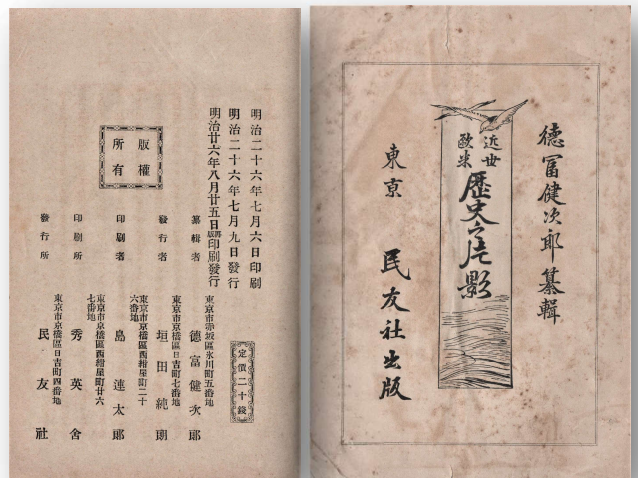 德富健次郎纂輯
近世
歐米
歷史之片影
東京　民友社出版
明治二十六年七月六日印刷
明治二十六年七月九日發行
明治廿六年八月廿五日再版印刷發行
定價二十錢
版權
所有
纂輯者
東京市赤坂區氷川町五番地
德富健次郎
發行者
東京市京橋區日吉町七番地
垣田純朗
印刷者
東京市京橋區西紺屋町二十
六番地
島連太郎
印刷所
東京市京橋區西紺屋町廿六
七番地
秀英舍
發行所
東京市京橋區日吉町四番地
民友社